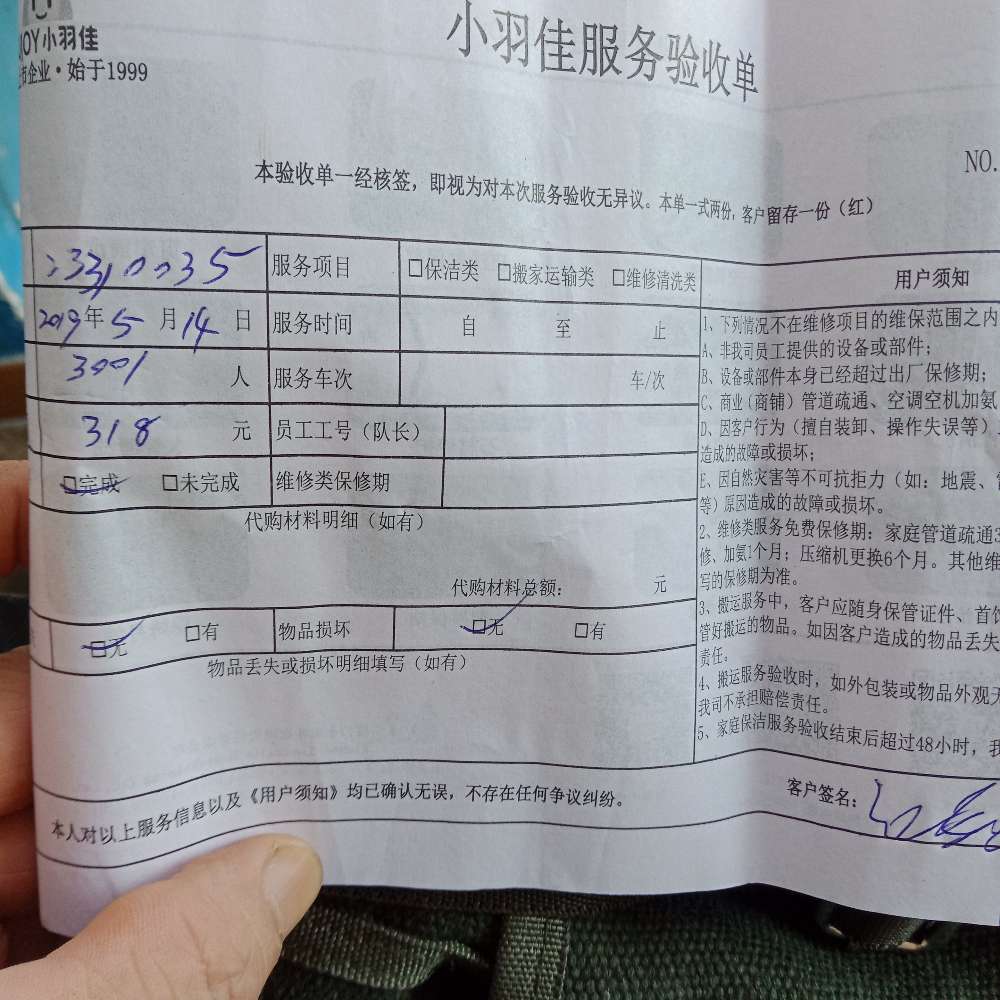 JOY小羽佳
市企业·始于1999
小羽佳服务验收单
NO.
本验收单一经核签，即视为对本次服务验收无异议。本单一式两份，客户留存一份（红）
服务项目 □保洁类 □搬家运输类 □维修清洗类
2019年5月14日 服务时间 自 至 止
3001 人 服务车次 车/次
318 元 员工工号（队长）
□完成 □未完成 维修类保修期
代购材料明细（如有）
代购材料总额： 元
□无 □有 物品损坏 □无 □有
物品丢失或损坏明细填写（如有）
用户须知
1、下列情况不在维修项目的维保范围之内
A、非我司员工提供的设备或部件；
B、设备或部件本身已经超过出厂保修期；
C、商业（商铺）管道疏通、空调空机加氨
D、因客户行为（擅自装卸、操作失误等）
造成的故障或损坏；
E、因自然灾害等不可抗拒力（如：地震、
等）原因造成的故障或损坏。
2、维修类服务免费保修期：家庭管道疏通3
修、加氨1个月；压缩机更换6个月。其他维
写的保修期为准。
3、搬运服务中，客户应随身保管证件、首饰
管好搬运的物品。如因客户造成的物品丢失
责任。
4、搬运服务验收时，如外包装或物品外观无
我司不承担赔偿责任。
5、家庭保洁服务验收结束后超过48小时，我
本人对以上服务信息以及《用户须知》均已确认无误，不存在任何争议纠纷。
客户签名：